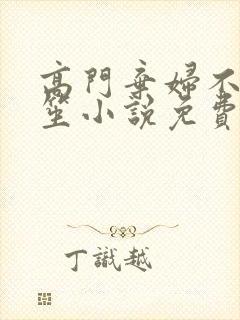 高門棄婦不
笙小說免費
丁識越